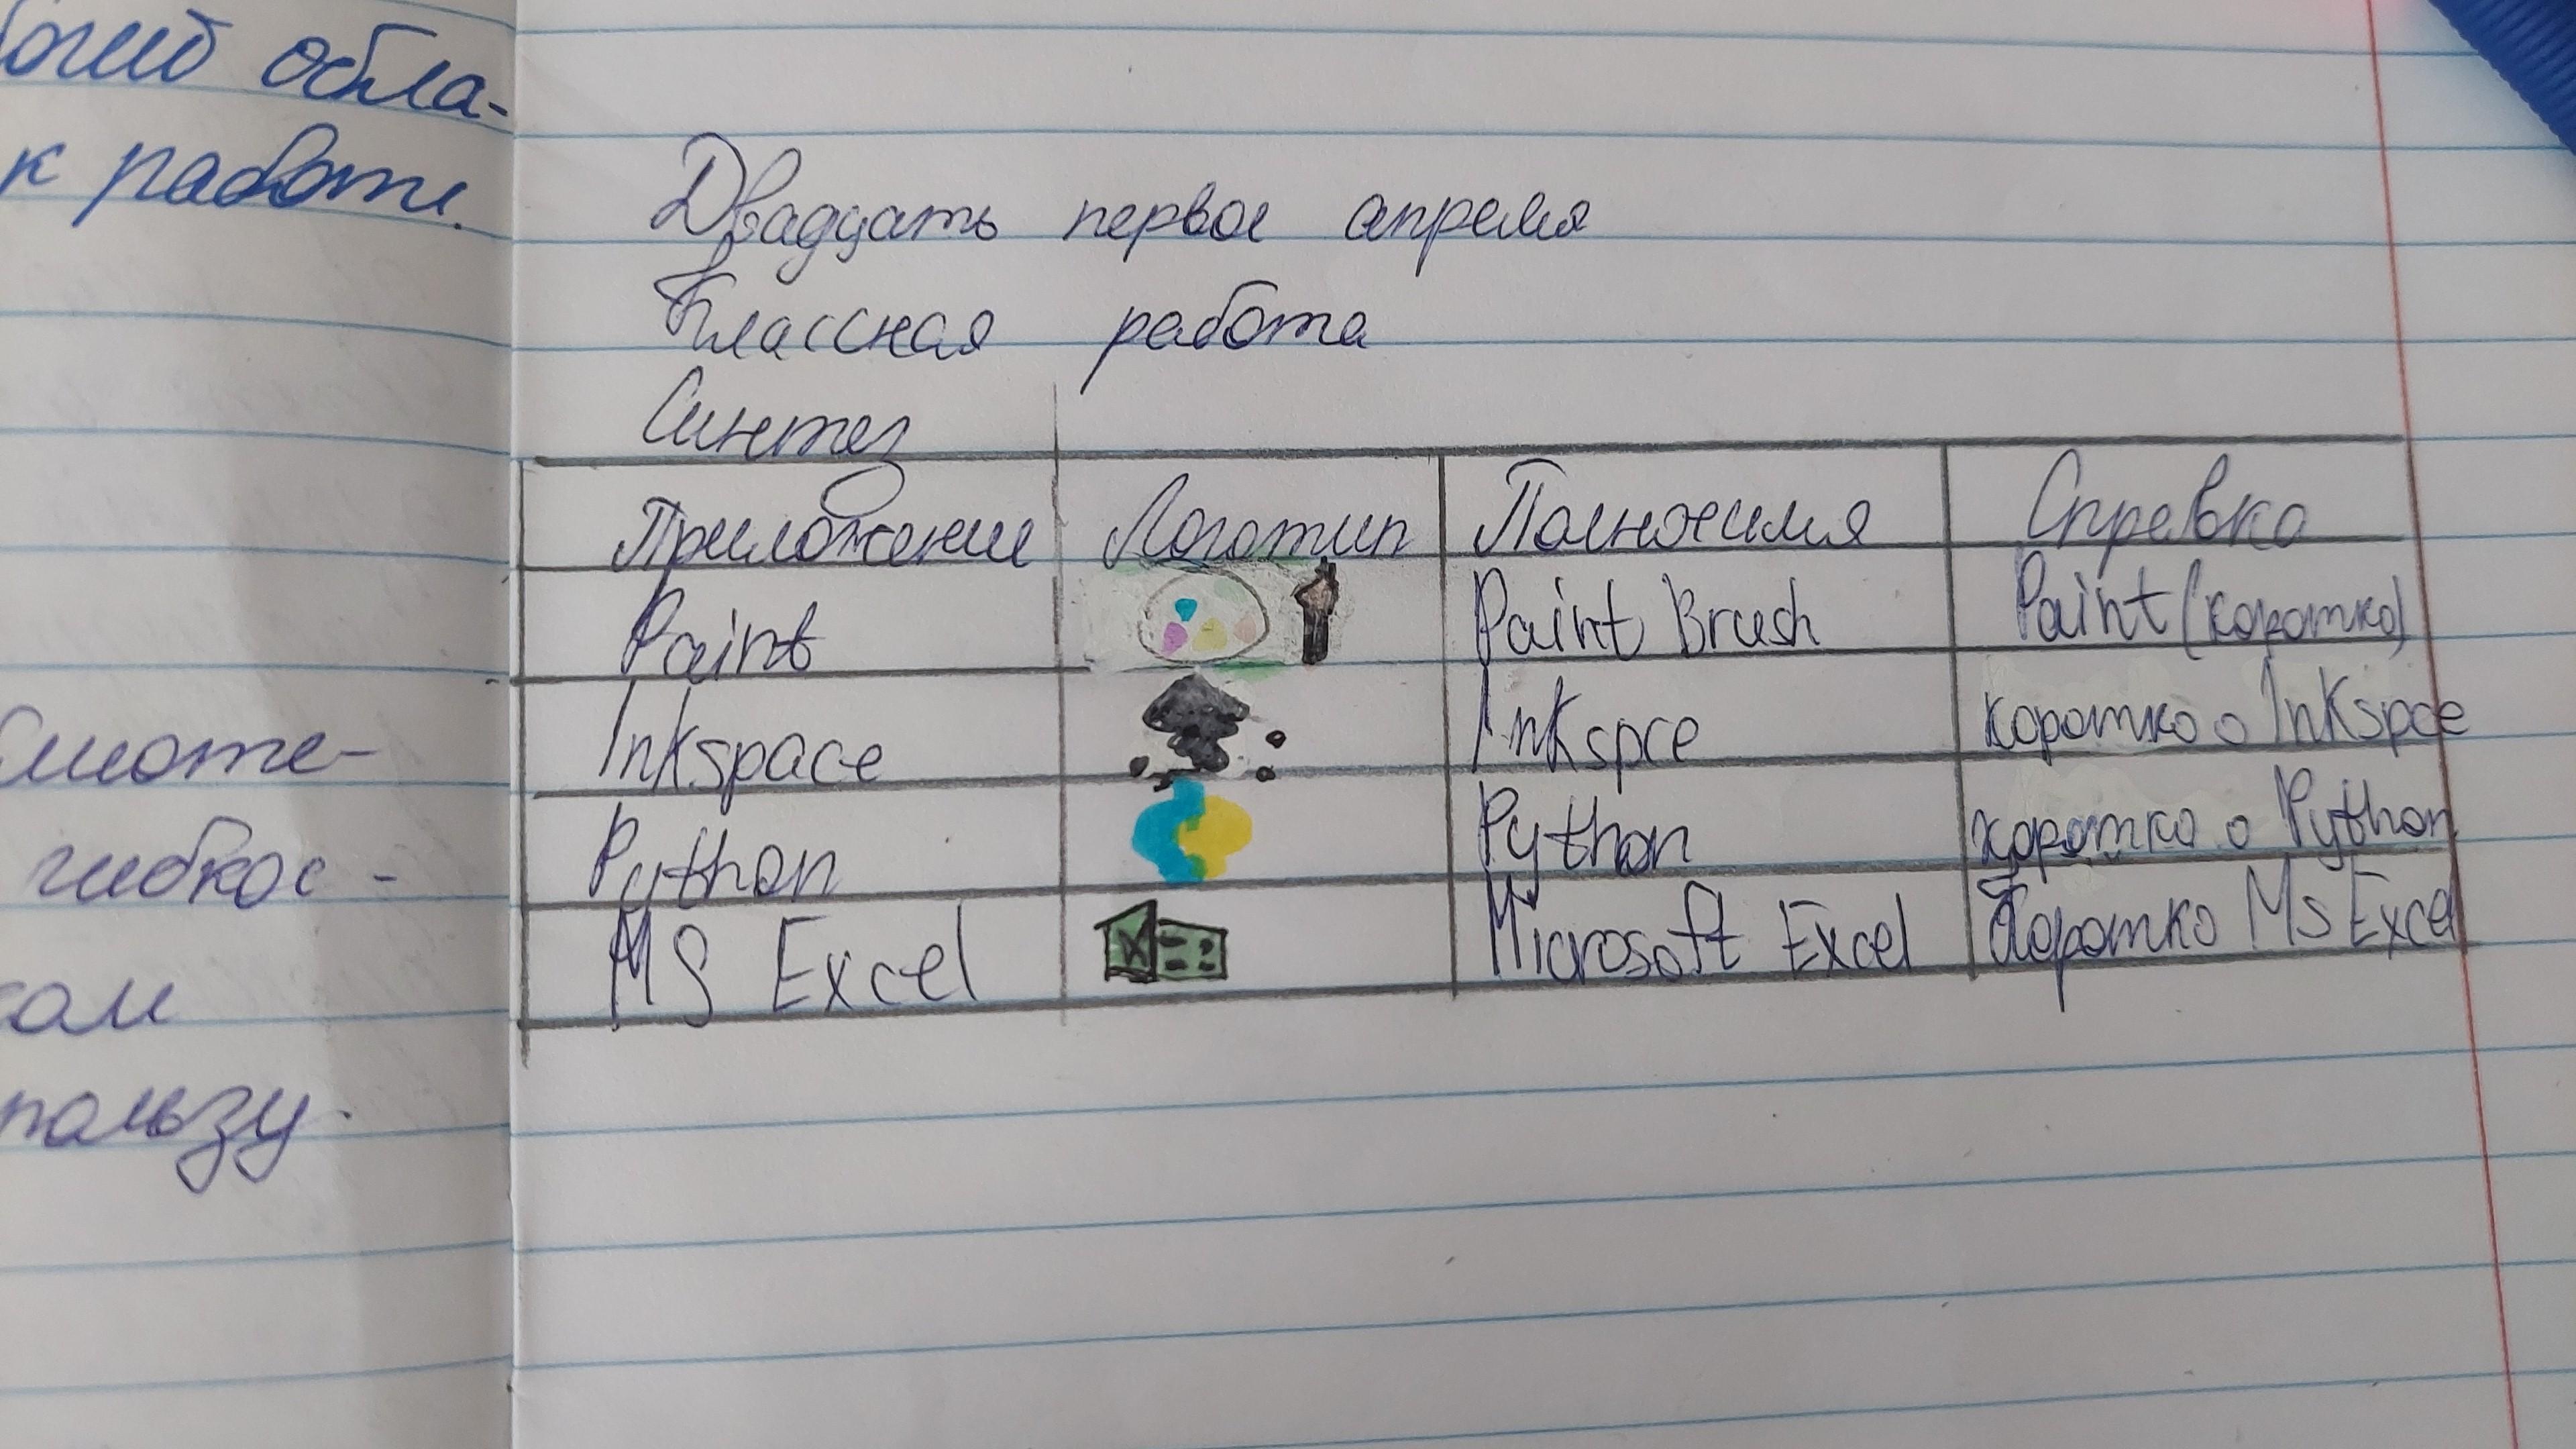 обла-
к работе.
гибкос-
пользу.
Двадцать первое апреля
Классная работа
Синтез
Приложение Логотип Полножимя Спревка
Paint Paint Brush Paint (коротко)
Inkspace Inkspce коротко о Inkspce
Python Python коротко о Python
MS Excel Microsoft Excel Коротко Ms Excel